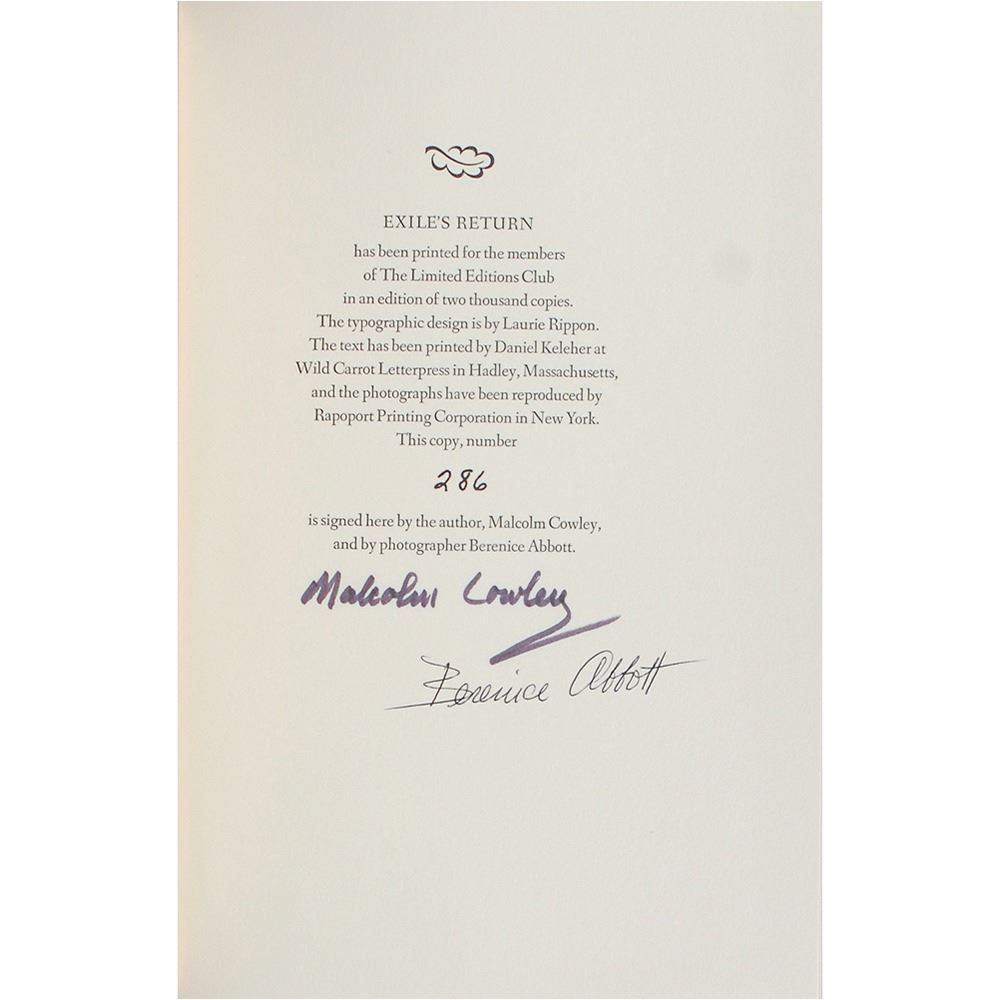 EXILE'S RETURN
has been printed for the members
of The Limited Editions Club
in an edition of two thousand copies.
The typographic design is by Laurie Rippon.
The text has been printed by Daniel Keleher at
Wild Carrot Letterpress in Hadley, Massachusetts,
and the photographs have been reproduced by
Rapoport Printing Corporation in New York.
This copy, number
286
is signed here by the author, Malcolm Cowley,
and by photographer Berenice Abbott.
Malcolm Cowley
Berenice Abbott